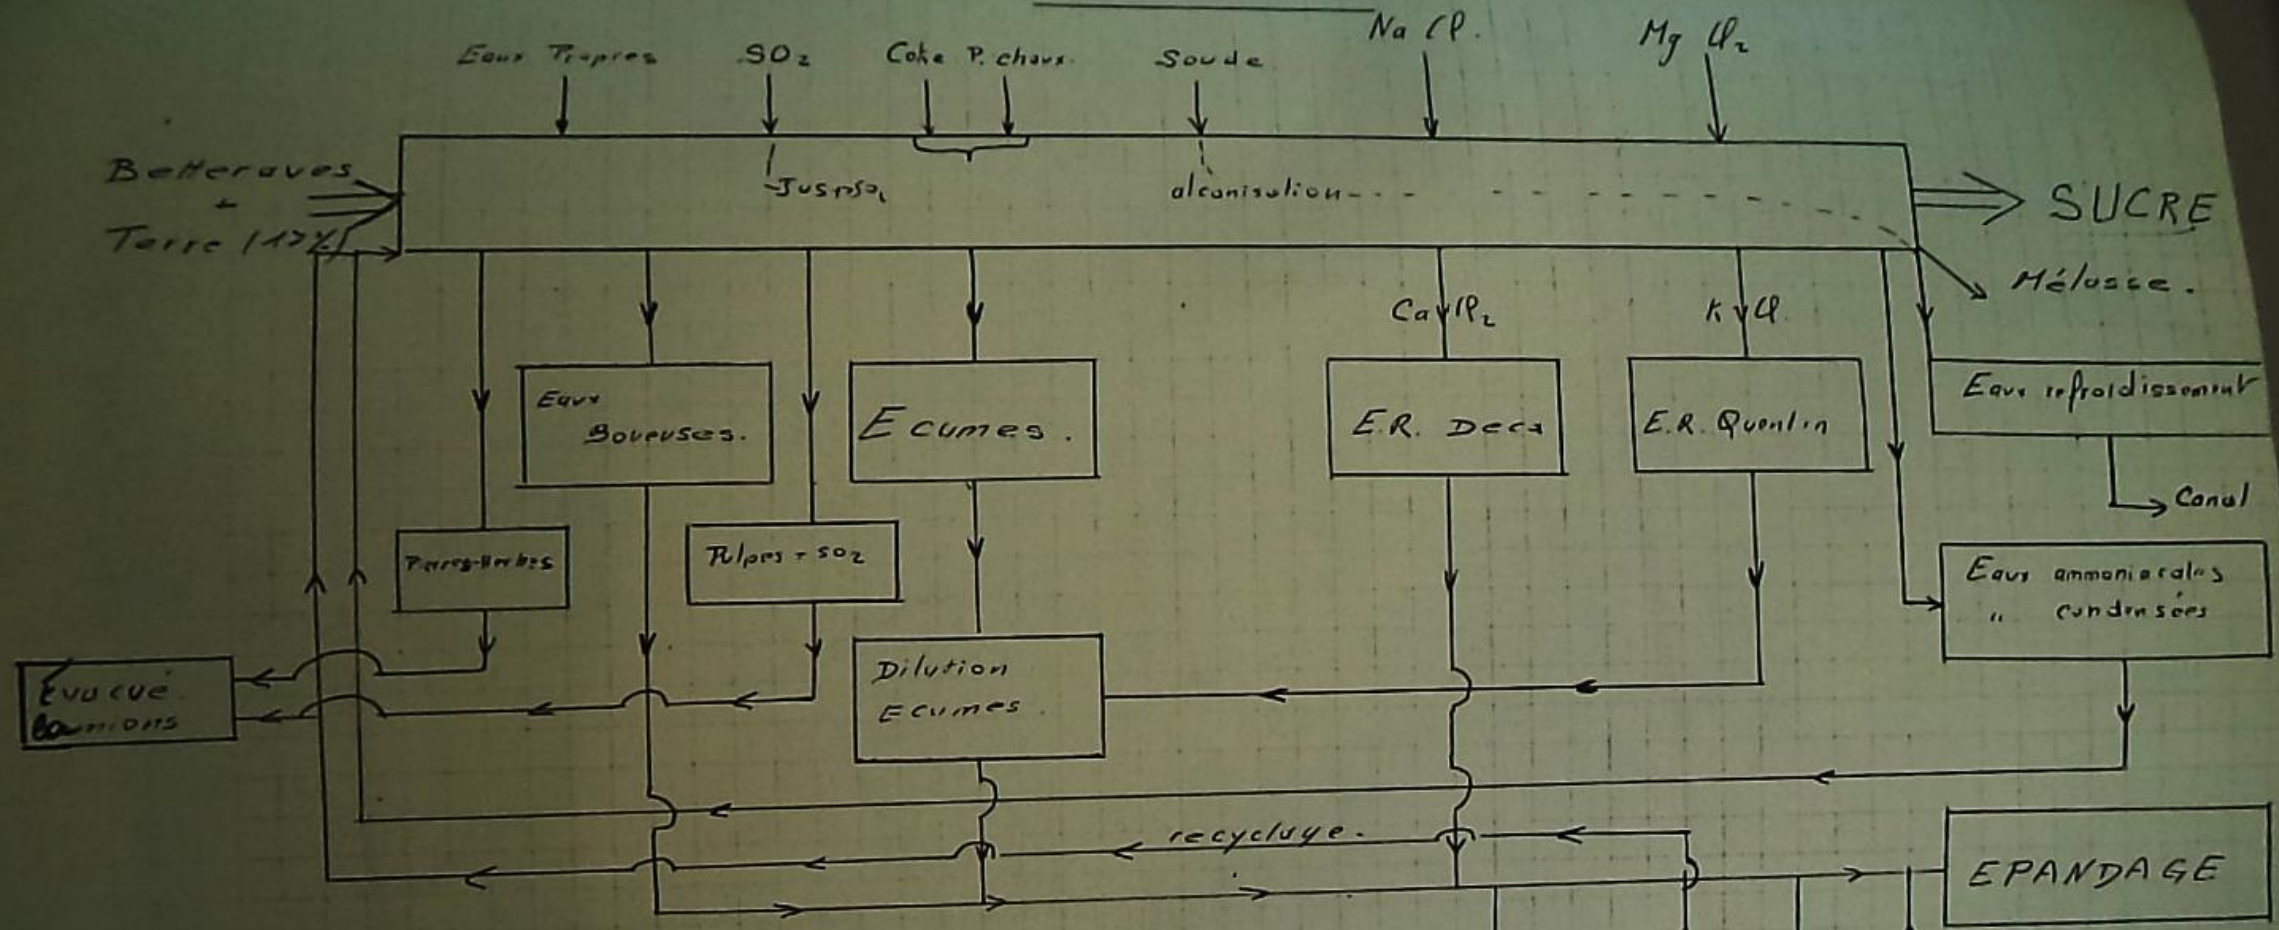 Na Cl.
Mg Cl₂
Eaux Propres
SO₂
Coke P. chaux.
Soude
Betteraves
+
Terre (17%)
alcanisation
SUCRE
Mélasse.
Ca Cl₂
K Cl.
Eaux
Boueuses.
Ecumes.
E.R. Deca
E.R. Quentin
Eaux refroidissement
Canal
Pierres-Herbes
Pulpes + SO₂
Eaux ammoniacales
" condensées
Dilution
Ecumes
Évacué
camions
recyclage.
EPANDAGE